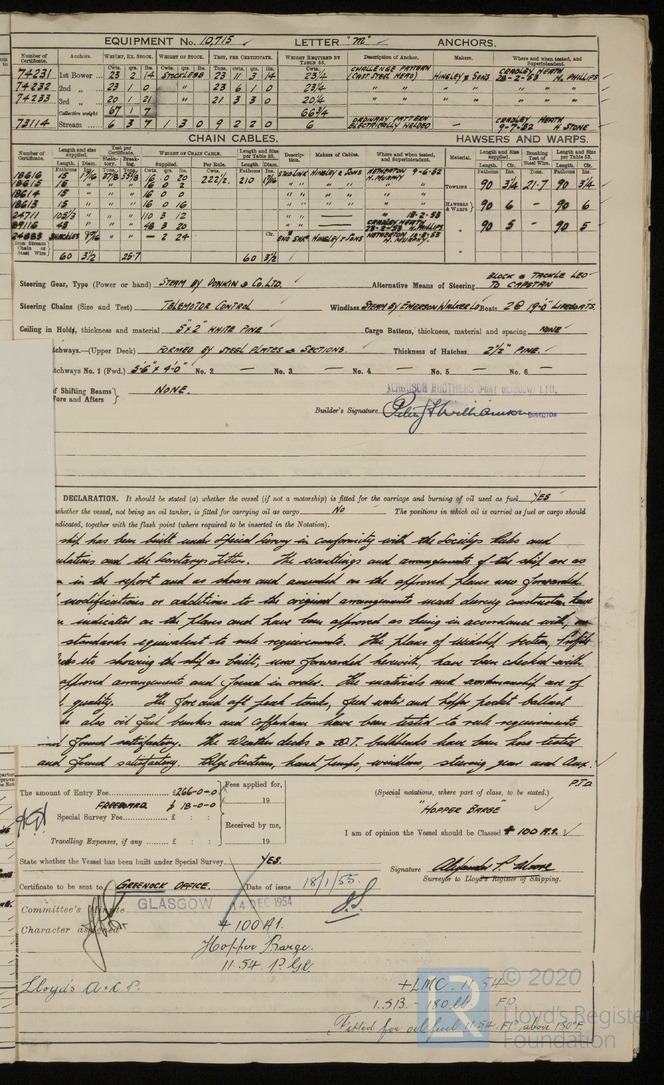 EQUIPMENT No. 10,715 LETTER "M" ANCHORS.
Number of Certificate. Anchors. WEIGHT, EX. STOCK. WEIGHT OF STOCK. TEST, PER CERTIFICATE. WEIGHT REQUIRED BY TABLE 53. Description of Anchor. Makers. Where and when tested, and Superintendent.
Cwts. qrs. lbs. Cwts. qrs. lbs. Tons. cwts. qrs. lbs. Cwts.
74231 1st Bower 23 2 14 STOCKLESS 23 11 3 14 23¼ CHALLENGE PATTERN (CAST STEEL HEAD) HINGLEY & SONS CRADLEY HEATH 28-2-53 H. PHILLIPS
74232 2nd „ 23 1 0 „ 23 6 1 0 23¼ „ „ „ „ „ „
74233 3rd „ 20 1 21 „ 21 3 3 0 20¼ „ „ „ „ „ „
Collective weight 67 1 7 66¾
73114 Stream 6 3 7 1 3 0 9 2 2 0 6 ORDINARY PATTERN ELECTRICALLY WELDED — CRADLEY HEATH 9-7-52 H STONE
CHAIN CABLES. HAWSERS AND WARPS.
Number of Certificate. Length and size supplied. Test per Certificate. WEIGHT OF CHAIN CABLE. Length and Size per Table 53. Description. Makers of Cables. Where and when tested, and Superintendent. Material. Length and Size supplied. Breaking Test of Steel Wire. Length and Size per Table 53.
Length. Diam. Supplied. Per Rule. Length. Diam. Length. Cir. Length. Cir.
18616 15 1 7/16 16 0 20 222½ 210 1 7/16 STUD LINK HINGLEY & SONS NETHERTON 9-6-52 H. MURPHY
18615 15 „ 16 0 2 „ „ TOWLINE 90 3¼ 21·7 90 3¼
18614 15 „ 16 0 0 „ „
18613 15 „ 16 0 16 „ „ HAWSERS & WARPS 90 6 - 90 6
24711 105/3 „ 110 3 12 „ „ 18-2-53
89116 45 „ 48 3 20 „ „ CRADLEY HEATH 28-2-53 H. PHILLIPS „ 90 5 - 90 5
24883 SHACKLES 9/16 — 2 24 END SHK HINGLEY & SONS NETHERTON 18-2-53 H. MURPHY.
Iron Stream Chain or Steel Wire 60 3½ 25·7 60 3½
Steering Gear, Type (Power or hand) STEAM BY DONKIN & CO. LTD. Alternative Means of Steering BLOCK & TACKLE LED TO CAPSTAN
Steering Chains (Size and Test) TELEMOTOR CONTROL Windlass STEAM BY EMERSON WALKER LD Boats 2@ 19'-0" LIFEBOATS.
Ceiling in Holds, thickness and material 5" x 2" WHITE PINE. Cargo Battens, thickness, material and spacing NONE
tchways.—(Upper Deck) FORMED BY STEEL PLATES & SECTIONS. Thickness of Hatches 2½" PINE.
tchways No. 1 (Fwd.) 5'-6" x 4'-0" No. 2 — No. 3 — No. 4 — No. 5 — No. 6 —
of Shifting Beams
Fore and Afters } NONE.
FERGUSON BROTHERS (PORT GLASGOW) LTD.
Builder's Signature DIRECTOR
DECLARATION. It should be stated (a) whether the vessel (if not a motorship) is fitted for the carriage and burning of oil used as fuel YES
whether the vessel, not being an oil tanker, is fitted for carrying oil as cargo No The positions in which oil is carried as fuel or cargo should
ndicated, together with the flash point (where required to be inserted in the Notation).
ship has been built under Special Survey in conformity with the Society's Rules and
ulations and the Secretarys Letter. The scantlings and arrangements of the ship are as
n in the report and as shown and amended on the approved plans now forwarded.
modifications or additions to the original arrangements made during construction have
n indicated on the plans and have been approved as being in accordance with, or
standards equivalent to rule requirements. The plans of Midship Section, Profile
ecks etc showing the ship as built, now forwarded herewith, have been checked with
approved arrangements and found in order. The materials and workmanship are of
quality. The fore and aft peak tanks, fresh water and hopper pocket ballast
s also oil fuel bunkers and cofferdam have been tested to rule requirements
nd found satisfactory. The Weather decks & W.T. bulkheads have been hose tested
and found satisfactory. Bilge suctions, hand pumps, windlass, steering gear and Aux.
P.T.O
The amount of Entry Fee £266-0-0 Fees applied for,
FREEBOARD £ 18-0-0 19
Special Survey Fee £ : : Received by me,
Travelling Expenses, if any £ : : 19
(Special notations, where part of class, to be stated.)
"HOPPER BARGE"
I am of opinion the Vessel should be Classed + 100 A.1.
State whether the Vessel has been built under Special Survey. YES.
Signature
Surveyor to Lloyd's Register of Shipping.
Certificate to be sent to GREENOCK OFFICE. Date of issue 18/1/55.
Committee's Minute GLASGOW 14 DEC 1954
Character assigned + 100 A1.
Hopper Barge.
11.54 P. Gl.
Lloyd's A & C P. + LMC. 11.54
1.SB. - 180 lb FD
Fitted for oil fuel 11.54. F.P. above 150°F.
LR © 2020
Lloyd's Register
Foundation